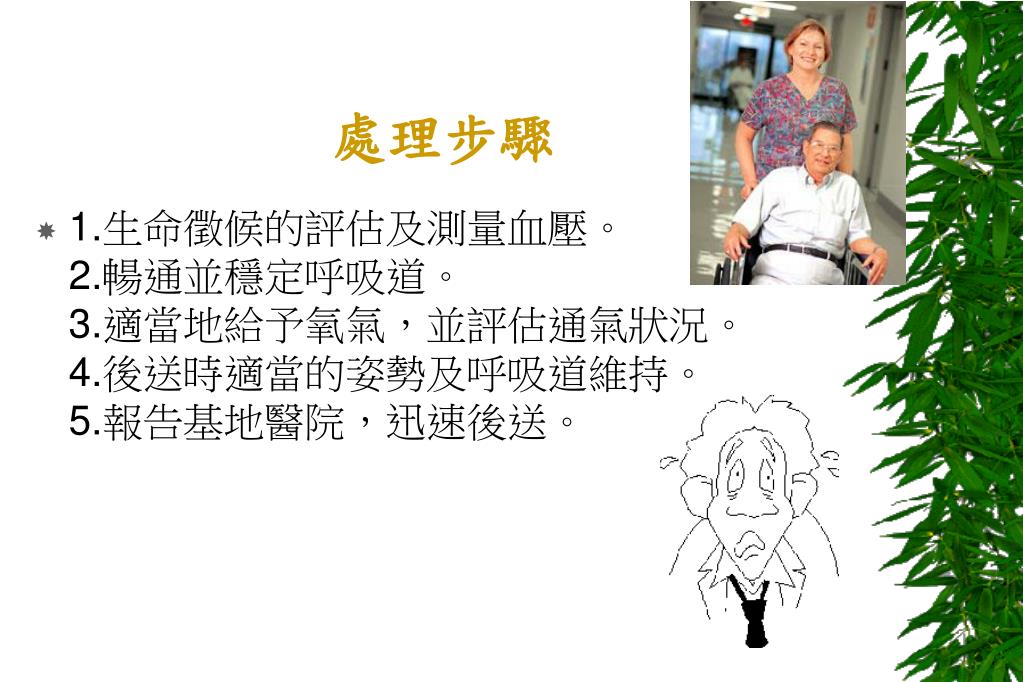 處理步驟
1.生命徵候的評估及測量血壓。
2.暢通並穩定呼吸道。
3.適當地給予氧氣，並評估通氣狀況。
4.後送時適當的姿勢及呼吸道維持。
5.報告基地醫院，迅速後送。